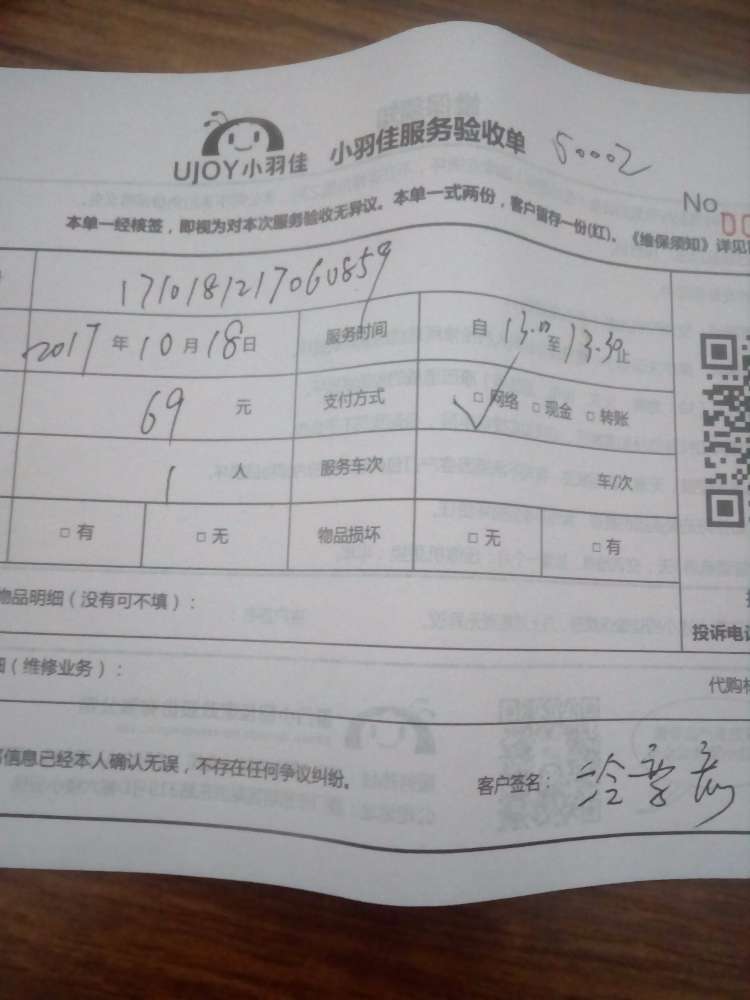 UJOY小羽佳 小羽佳服务验收单 50002
No
本单一经核签，即视为对本次服务验收无异议。本单一式两份，客户留存一份(红)。《维保须知》详见
1710181217060859
2017年10月18日 服务时间 自13.00至13.30止
69元 支付方式 □网络 □现金 □转账
1人 服务车次 车/次
□有 □无 物品损坏 □无 □有
物品明细（没有可不填）：
投诉电
（维修业务）：
代购
信息已经本人确认无误，不存在任何争议纠纷。 客户签名：